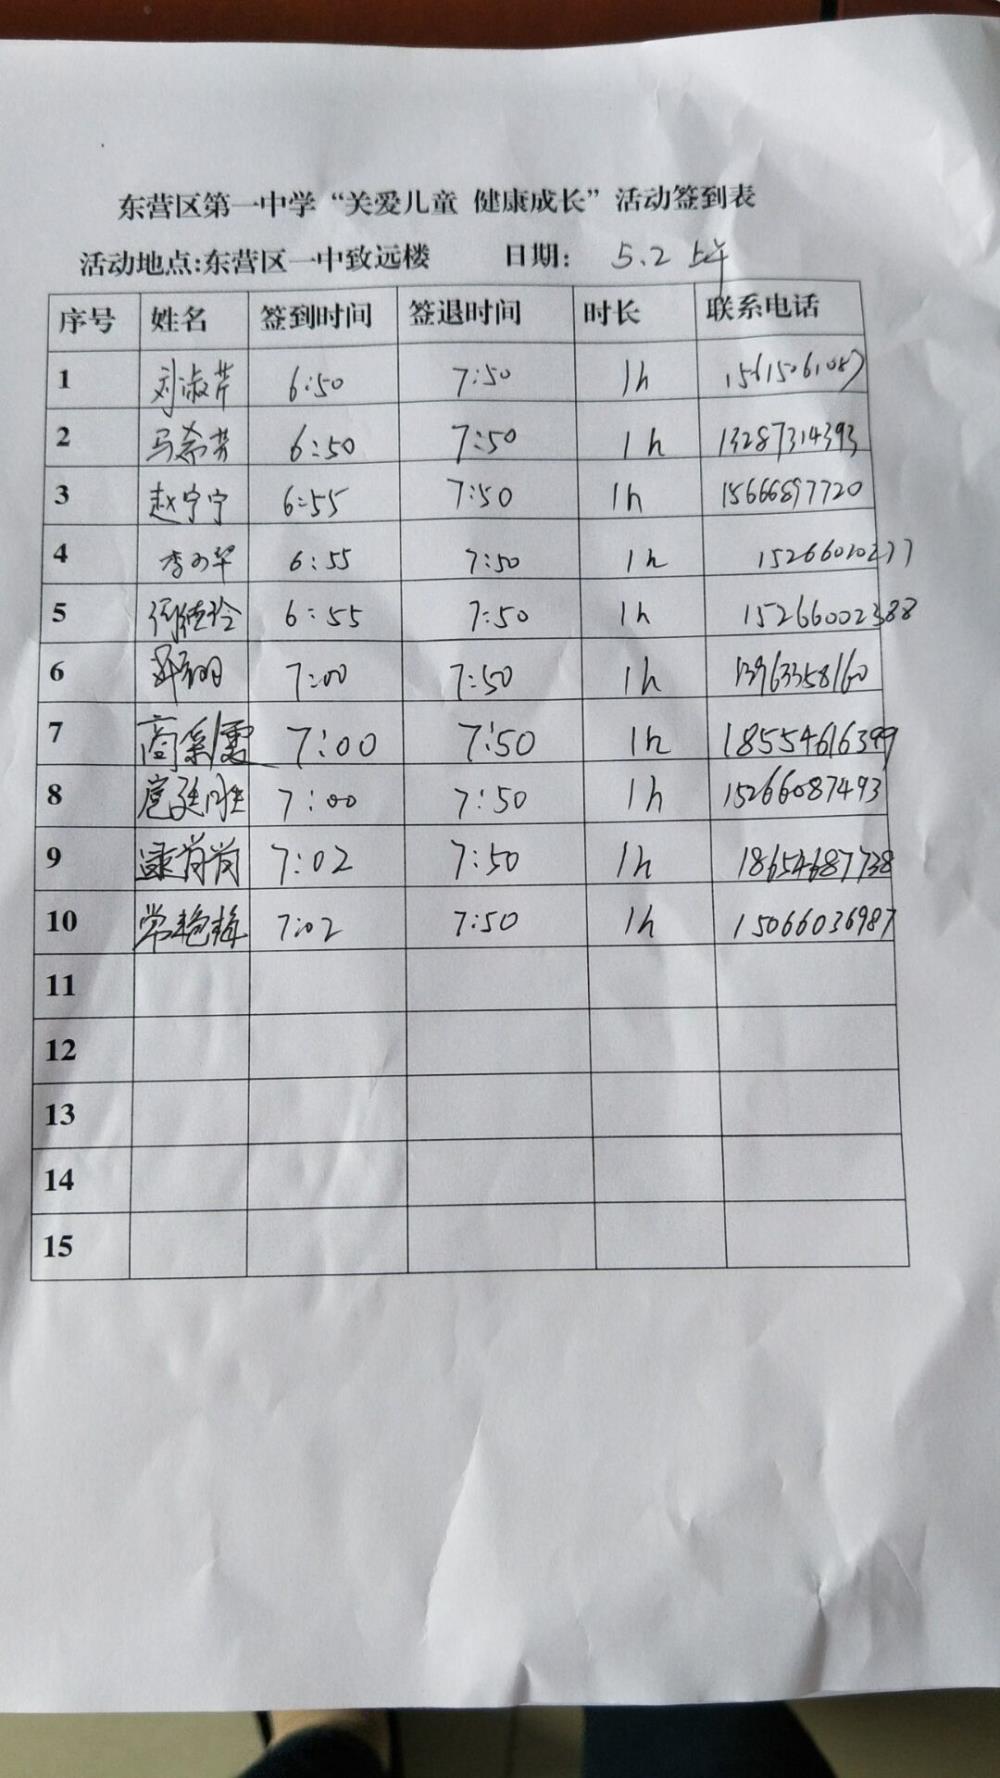 东营区第一中学“关爱儿童 健康成长”活动签到表
活动地点:东营区一中致远楼 日期: 5.2 上午
序号 姓名 签到时间 签退时间 时长 联系电话
1 刘淑芹 6:50 7:50 1h 15615061087
2 马希芳 6:50 7:50 1h 13287314393
3 赵宁宁 6:55 7:50 1h 15666897720
4 6:55 7:50 1h
5 6:55 7:50 1h 15266002388
6 7:00 7:50 1h 13963358160
7 商彩霞 7:00 7:50 1h 18554616399
8 7:00 7:50 1h 15266087493
9 7:02 7:50 1h 18654687738
10 常艳梅 7:02 7:50 1h 15066036987
11
12
13
14
15